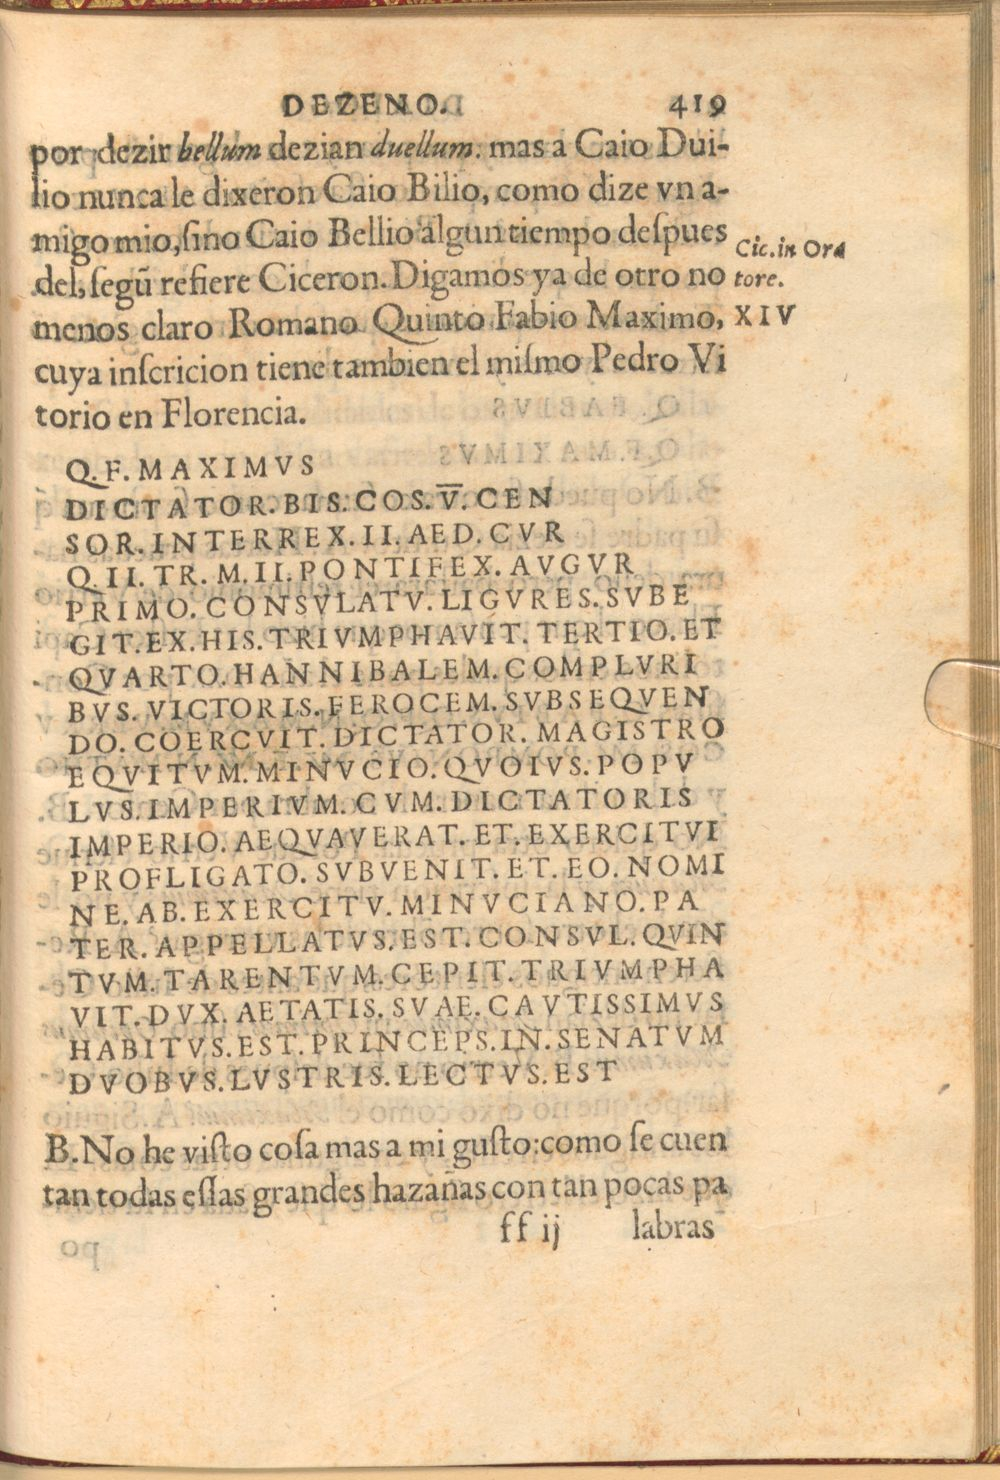 DEZENO. 419
por dezir bellum dezian duellum. mas a Caio Dui-
lio nunca le dixeron Caio Bilio, como dize vn a-
migo mio, ſino Caio Bellio algun tiempo deſpues
del, ſegũ refiere Ciceron. Digamos ya de otro no
Cic. in Ora
tore.
menos claro Romano Quinto Fabio Maximo,
XIV
cuya inſcricion tiene tambien el miſmo Pedro Vi
torio en Florencia.
Q. F. MAXIMVS
DICTATOR. BIS. COS. V̅. CEN
SOR. INTERREX. II. AED. CVR
Q. II. TR. M. II. PONTIFEX. AVGVR
PRIMO. CONSVLATV. LIGVRES. SVBE
GIT. EX. HIS. TRIVMPHAVIT. TERTIO. ET
QVARTO. HANNIBALEM. COMPLVRI
BVS. VICTORIS. FEROCEM. SVBSEQVEN
DO. COERCVIT. DICTATOR. MAGISTRO
EQVITVM. MINVCIO. QVOIVS. POPV
LVS. IMPERIVM. CVM. DICTATORIS
IMPERIO. AEQVAVERAT. ET. EXERCITVI
PROFLIGATO. SVBVENIT. ET. EO. NOMI
NE. AB. EXERCITV. MINVCIANO. PA
TER. APPELLATVS. EST. CONSVL. QVIN
TVM. TARENTVM. CEPIT. TRIVMPHA
VIT. DVX. AETATIS. SVAE. CAVTISSIMVS
HABITVS. EST. PRINCEPS. IN. SENATVM
DVOBVS. LVSTRIS. LECTVS. EST
B. No he viſto coſa mas a mi guſto: como ſe cuen
tan todas eſtas grandes hazañas con tan pocas pa
ff ij labras